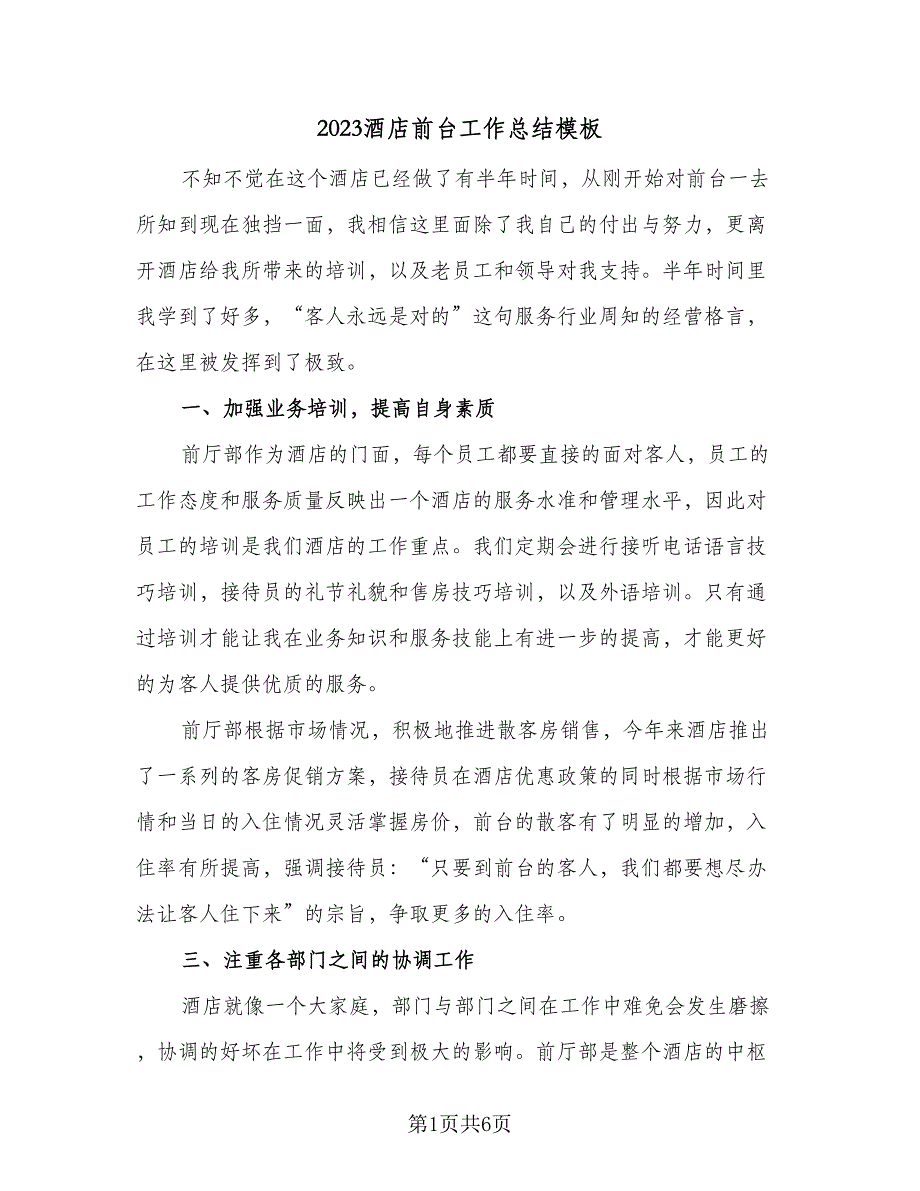 2023酒店前台工作总结模板
不知不觉在这个酒店已经做了有半年时间，从刚开始对前台一去
所知到现在独挡一面，我相信这里面除了我自己的付出与努力，更离
开酒店给我所带来的培训，以及老员工和领导对我支持。半年时间里
我学到了好多，“客人永远是对的”这句服务行业周知的经营格言，
在这里被发挥到了极致。
一、加强业务培训，提高自身素质
前厅部作为酒店的门面，每个员工都要直接的面对客人，员工的
工作态度和服务质量反映出一个酒店的服务水准和管理水平，因此对
员工的培训是我们酒店的工作重点。我们定期会进行接听电话语言技
巧培训，接待员的礼节礼貌和售房技巧培训，以及外语培训。只有通
过培训才能让我在业务知识和服务技能上有进一步的提高，才能更好
的为客人提供优质的服务。
前厅部根据市场情况，积极地推进散客房销售，今年来酒店推出
了一系列的客房促销方案，接待员在酒店优惠政策的同时根据市场行
情和当日的入住情况灵活掌握房价，前台的散客有了明显的增加，入
住率有所提高，强调接待员：“只要到前台的客人，我们都要想尽办
法让客人住下来”的宗旨，争取更多的入住率。
三、注重各部门之间的协调工作
酒店就像一个大家庭，部门与部门之间在工作中难免会发生磨擦
，协调的好坏在工作中将受到极大的影响。前厅部是整个酒店的中枢
第1页共6页